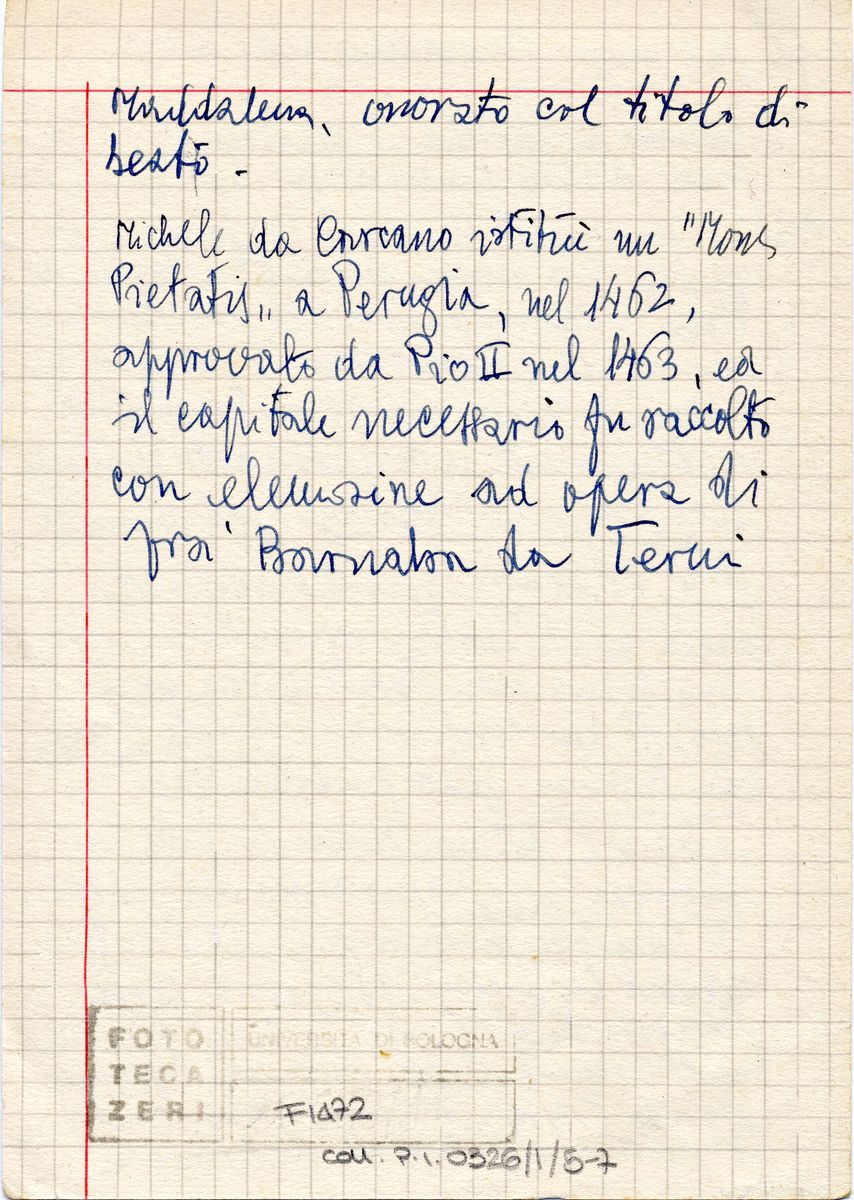 Maddalena, onorato col titolo di
beato -
Michele da Carcano istituì un "Mons
Pietatis" a Perugia, nel 1462,
approvato da Pio II nel 1463, ed
il capitale necessario fu raccolto
con elemosine ad opera di
fra' Barnaba da Terni
FOTO
TECA
ZERI
UNIVERSITA DI BOLOGNA
F1472
coll. P.I. 0326/1/5-7